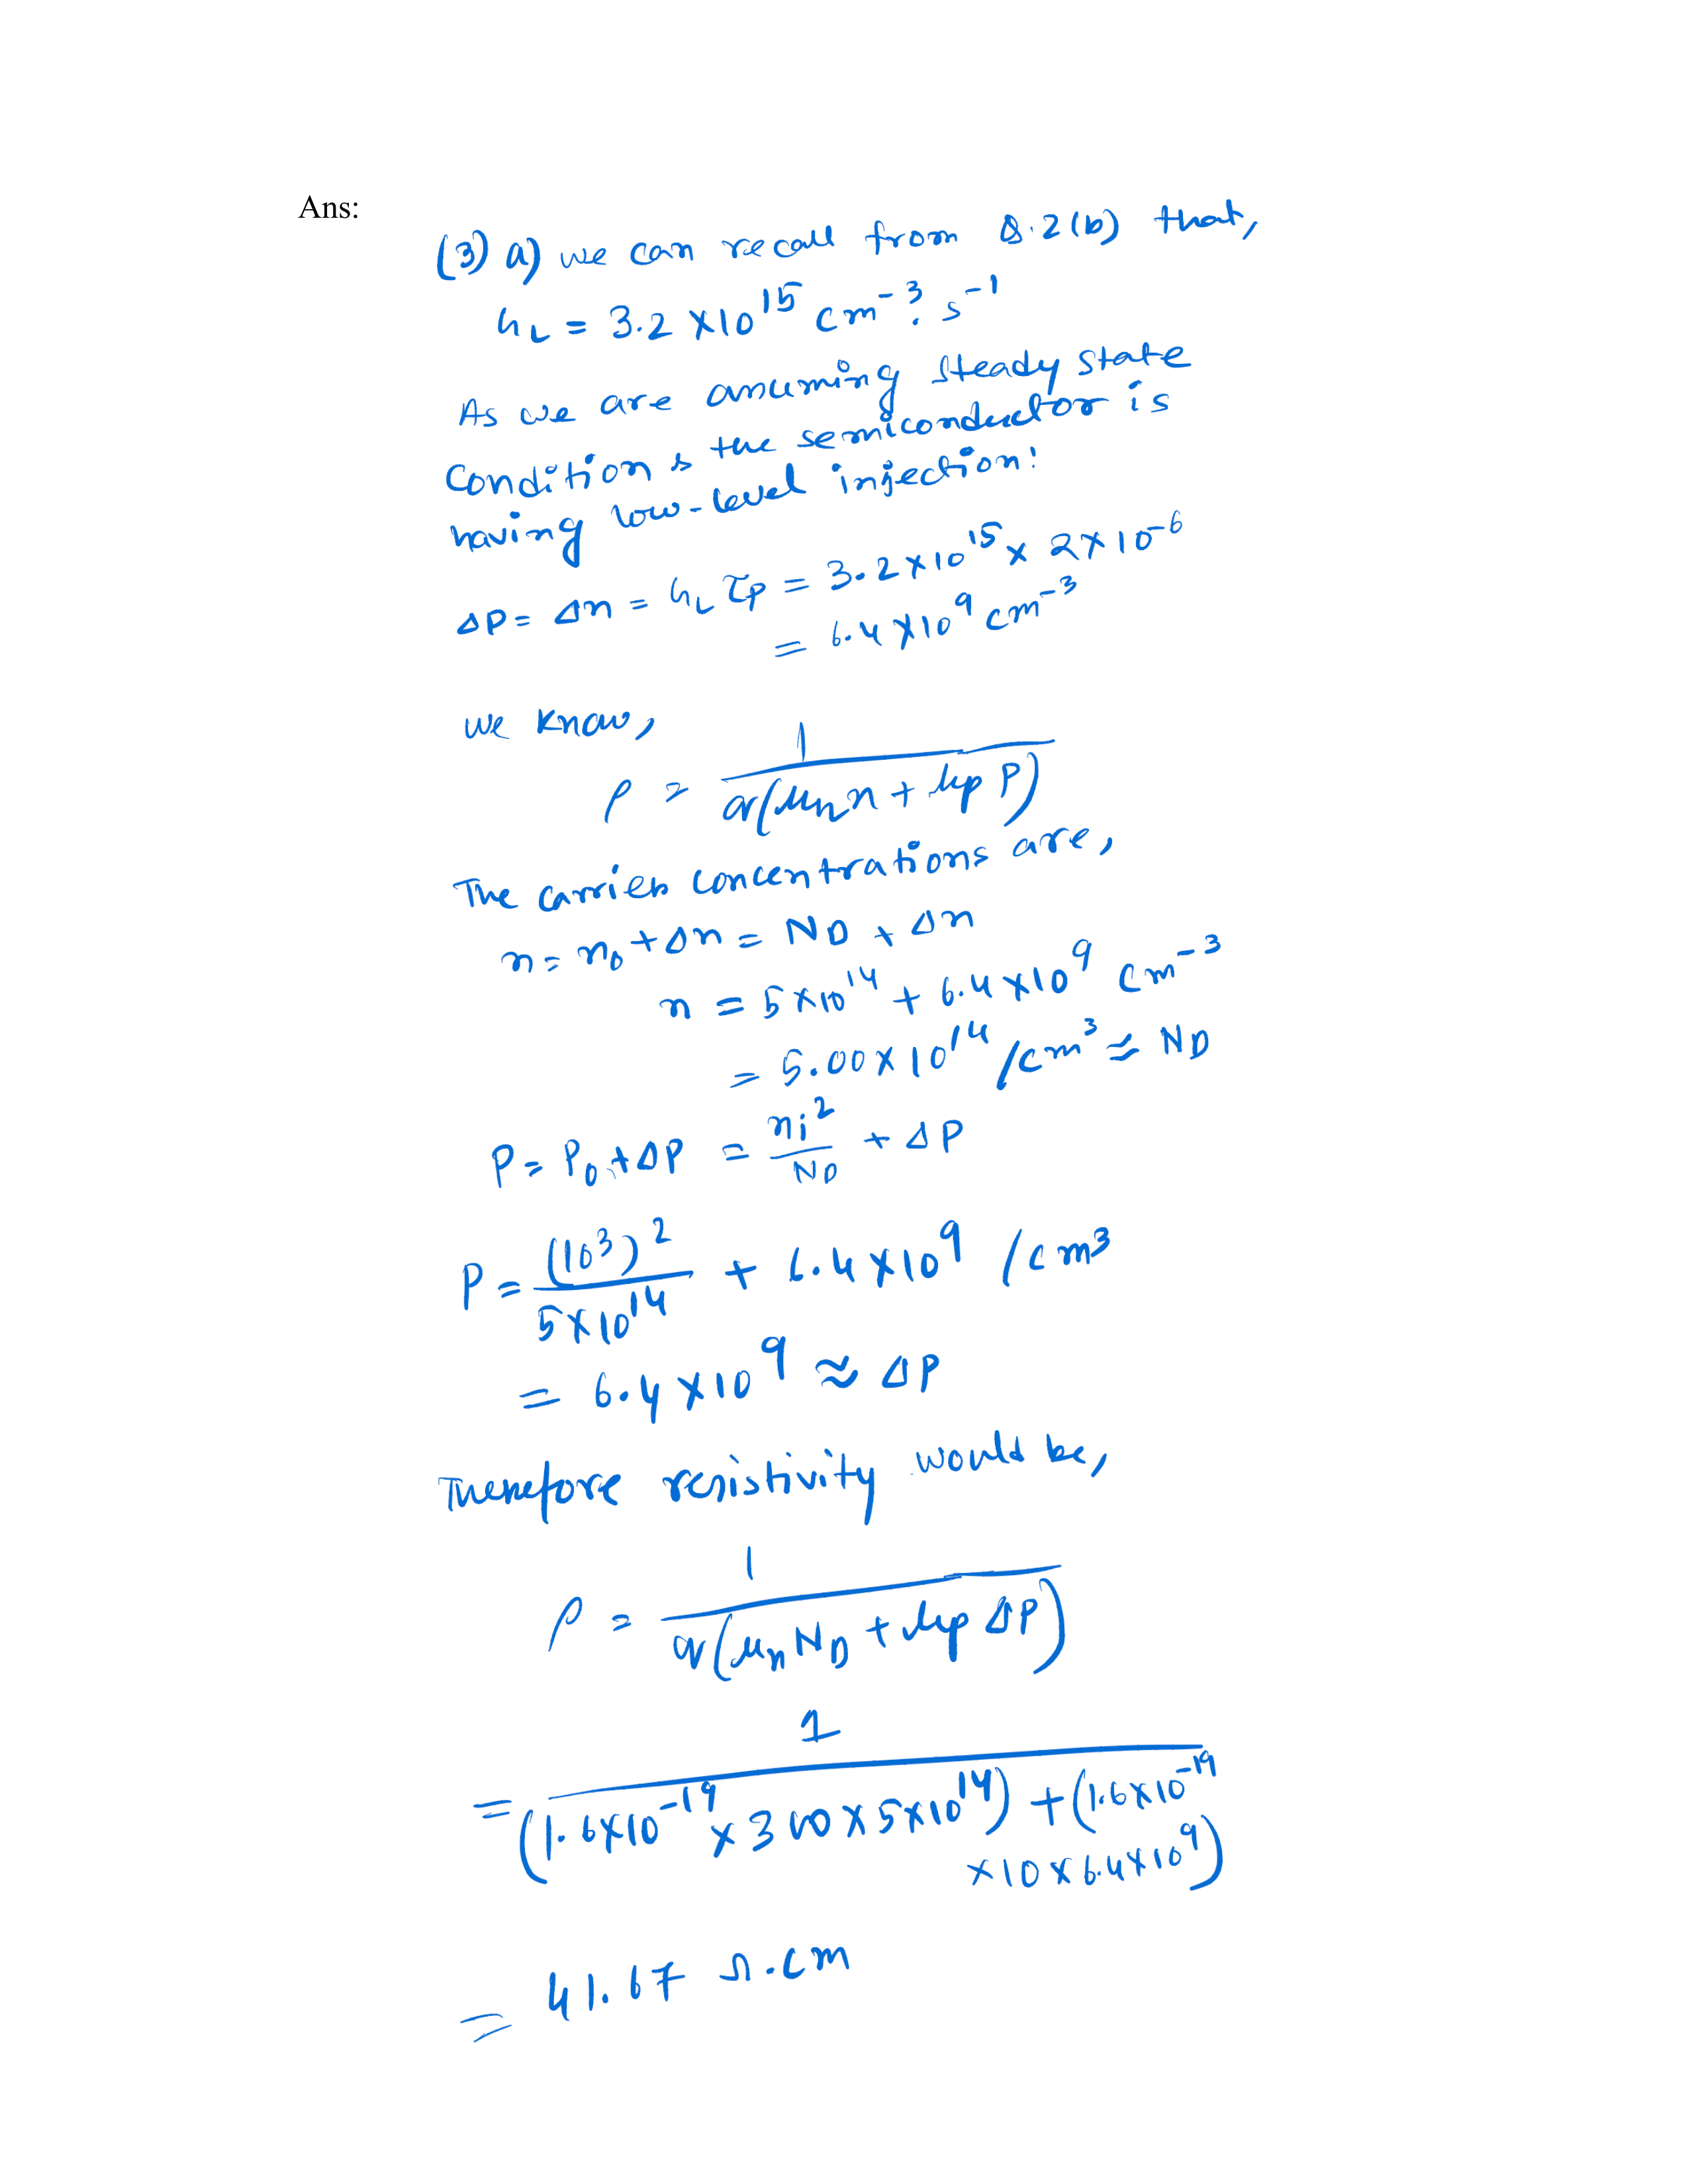 Ans:
(3) a) we can recall from Q.2(b) that,
G_L = 3.2 × 10^15 cm^-3. s^-1
As we are assuming steady state
condition & the semiconductor is
having low-level injection:
Δp = Δn = G_L τ_p = 3.2×10^15 × 2×10^-6
= 6.4×10^9 cm^-3
we know,
ρ = 1/(q(μ_n n + μ_p P))
The carrier concentrations are,
n = n_0 + Δn = ND + Δn
n = 5×10^14 + 6.4×10^9 cm^-3
= 5.00×10^14 /cm^3 ≈ ND
P = P_0 + ΔP = ni^2/ND + ΔP
P = (10^3)^2/(5×10^14) + 6.4×10^9 /cm^3
= 6.4×10^9 ≈ ΔP
Therefore resistivity would be,
ρ = 1/(q(μ_n N_D + μ_p ΔP))
= 1/((1.6×10^-19 × 300 × 5×10^14) + (1.6×10^-19 ×10×6.4×10^9))
= 41.67 Ω.cm